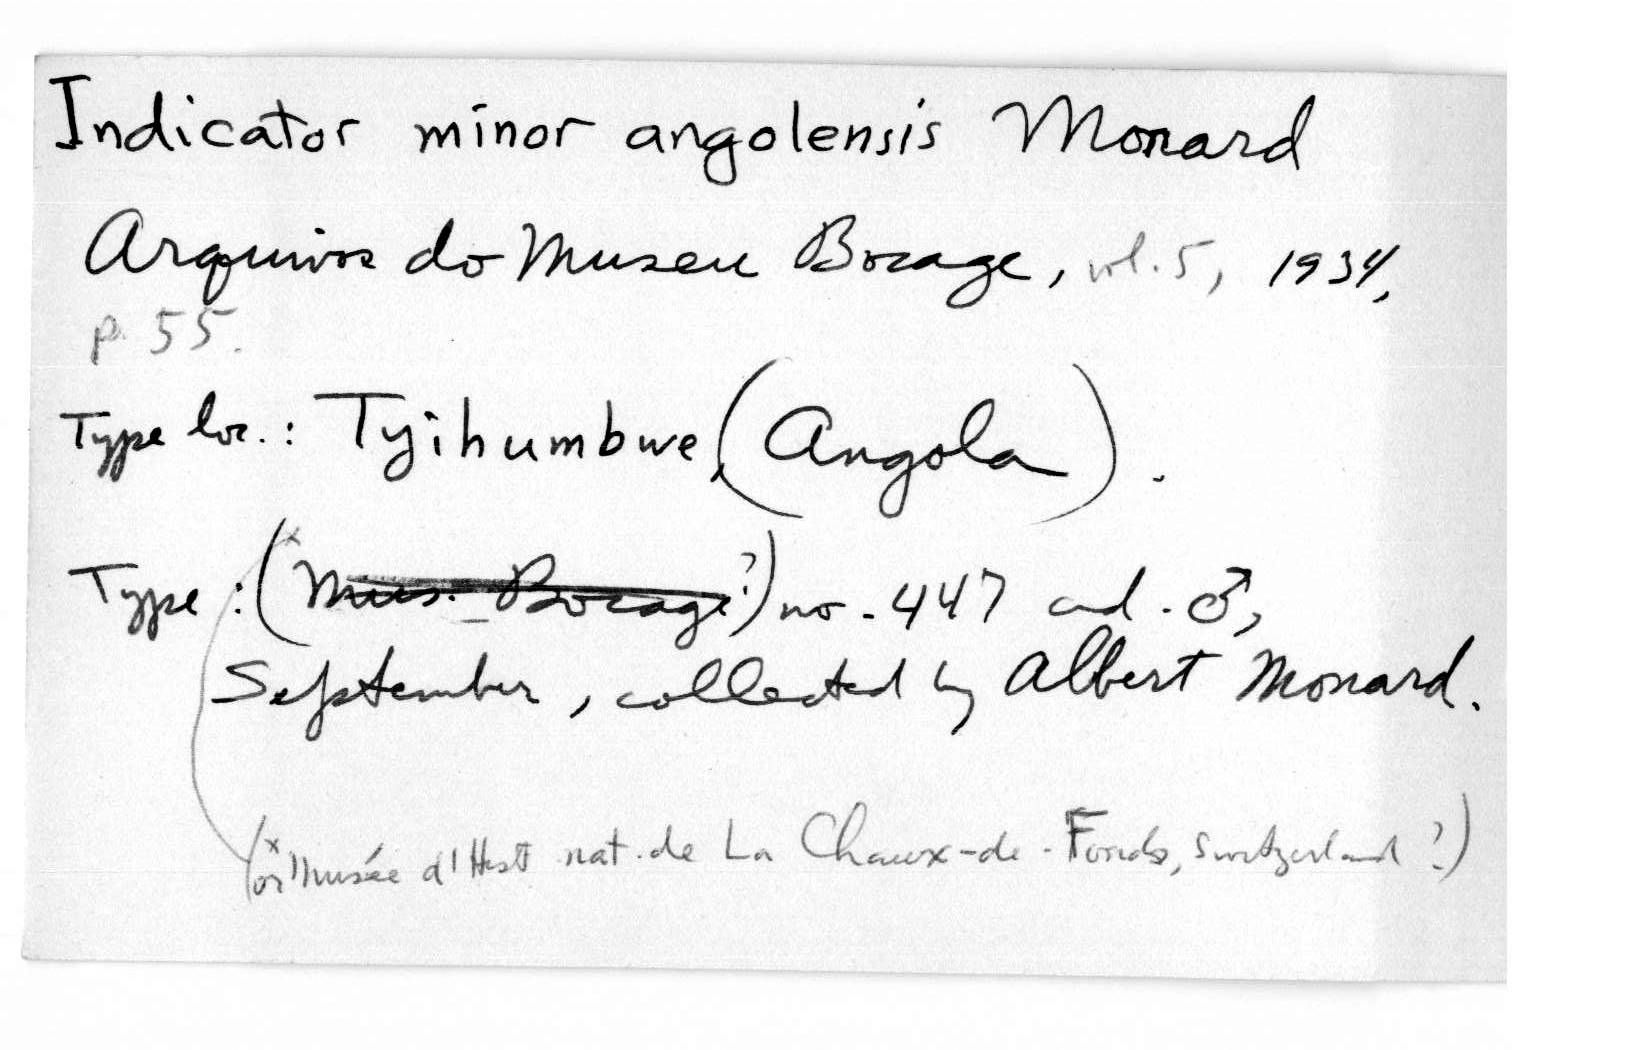 Indicator minor angolensis Monard
Arquivos do Museu Bocage, vol. 5, 1934,
p. 55.
Type loc.: Tyihumbwe, (Angola).
Type : (x Mus. Bocage?) no. 447 ad. ♂,
September, collected by Albert Monard.
(x or Musée d'Hist nat. de La Chaux-de-Fonds, Switzerland?)